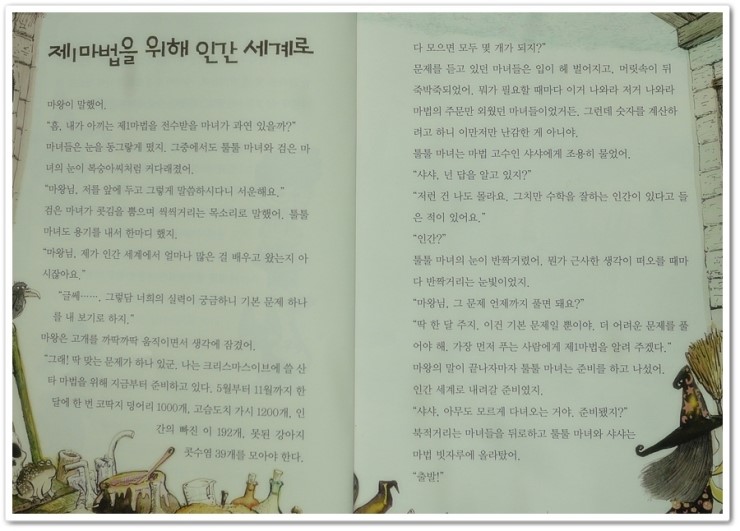 제1마법을 위해 인간 세계로
마왕이 말했어.
“흠, 내가 아끼는 제1마법을 전수받을 마녀가 과연 있을까?”
마녀들은 눈을 동그랗게 떴지. 그중에서도 툴툴 마녀와 검은 마
녀의 눈이 복숭아씨처럼 커다래졌어.
“마왕님, 저를 앞에 두고 그렇게 말씀하시다니 서운해요.”
검은 마녀가 콧김을 뿜으며 씩씩거리는 목소리로 말했어. 툴툴
마녀도 용기를 내서 한마디 했지.
“마왕님, 제가 인간 세계에서 얼마나 많은 걸 배우고 왔는지 아
시잖아요.”
“글쎄……. 그렇담 너희의 실력이 궁금하니 기본 문제 하나
를 내 보기로 하지.”
마왕은 고개를 까딱까딱 움직이면서 생각에 잠겼어.
“그래! 딱 맞는 문제가 하나 있군. 나는 크리스마스이브에 쓸 산
타 마법을 위해 지금부터 준비하고 있다. 5월부터 11월까지 한
달에 한 번 코딱지 덩어리 1000개, 고슴도치 가시 1200개, 인
간의 빠진 이 192개, 못된 강아지
콧수염 39개를 모아야 한다.
다 모으면 모두 몇 개가 되지?”
문제를 듣고 있던 마녀들은 입이 헤 벌어지고, 머릿속이 뒤
죽박죽되었어. 뭐가 필요할 때마다 이거 나와라 저거 나와라
마법의 주문만 외웠던 마녀들이었거든. 그런데 숫자를 계산하
려고 하니 이만저만 난감한 게 아니야.
툴툴 마녀는 마법 고수인 샤샤에게 조용히 물었어.
“샤샤, 넌 답을 알고 있지?”
“저런 건 나도 몰라요. 그치만 수학을 잘하는 인간이 있다고 들
은 적이 있어요.”
“인간?”
툴툴 마녀의 눈이 반짝거렸어. 뭔가 근사한 생각이 떠오를 때마
다 반짝거리는 눈빛이었지.
“마왕님, 그 문제 언제까지 풀면 돼요?”
“딱 한 달 주지. 이건 기본 문제일 뿐이야. 더 어려운 문제를 풀
어야 해. 가장 먼저 푸는 사람에게 제1마법을 알려 주겠다.”
마왕의 말이 끝나자마자 툴툴 마녀는 준비를 하고 나섰어.
인간 세계로 내려갈 준비였지.
“샤샤, 아무도 모르게 다녀오는 거야. 준비됐지?”
북적거리는 마녀들을 뒤로하고 툴툴 마녀와 샤샤는
마법 빗자루에 올라탔어.
“출발!”